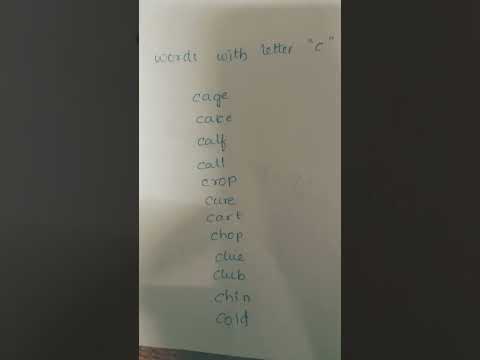 words with letter "c"
cage
cake
calf
call
crop
cure
cart
chop
clue
club
chin
cold